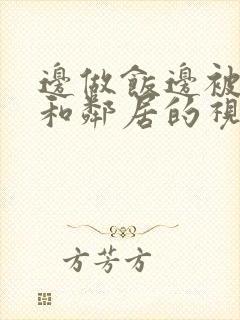 邊做飯邊被
和鄰居的視
方芳方